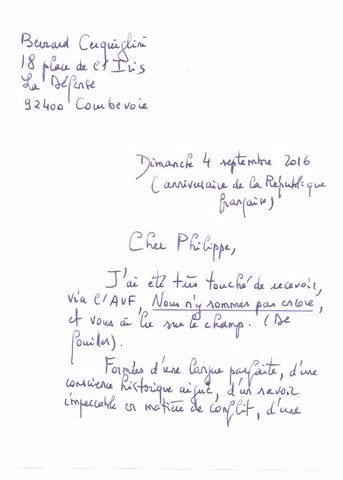 Bernard Cerquiglini
18 place de l'Iris
La Défense
92400 Courbevoie
Dimanche 4 septembre 2016
(anniversaire de la République
française)
Cher Philippe,
J'ai été très touché de recevoir,
via l'AVF, Nous n'y sommes pas encore,
et vous ai lu sur le champ. (De
fouiller).
Formées d'une langue parfaite, d'une
conscience historique aiguë, d'un savoir
impeccable en matière de conflit, d'une